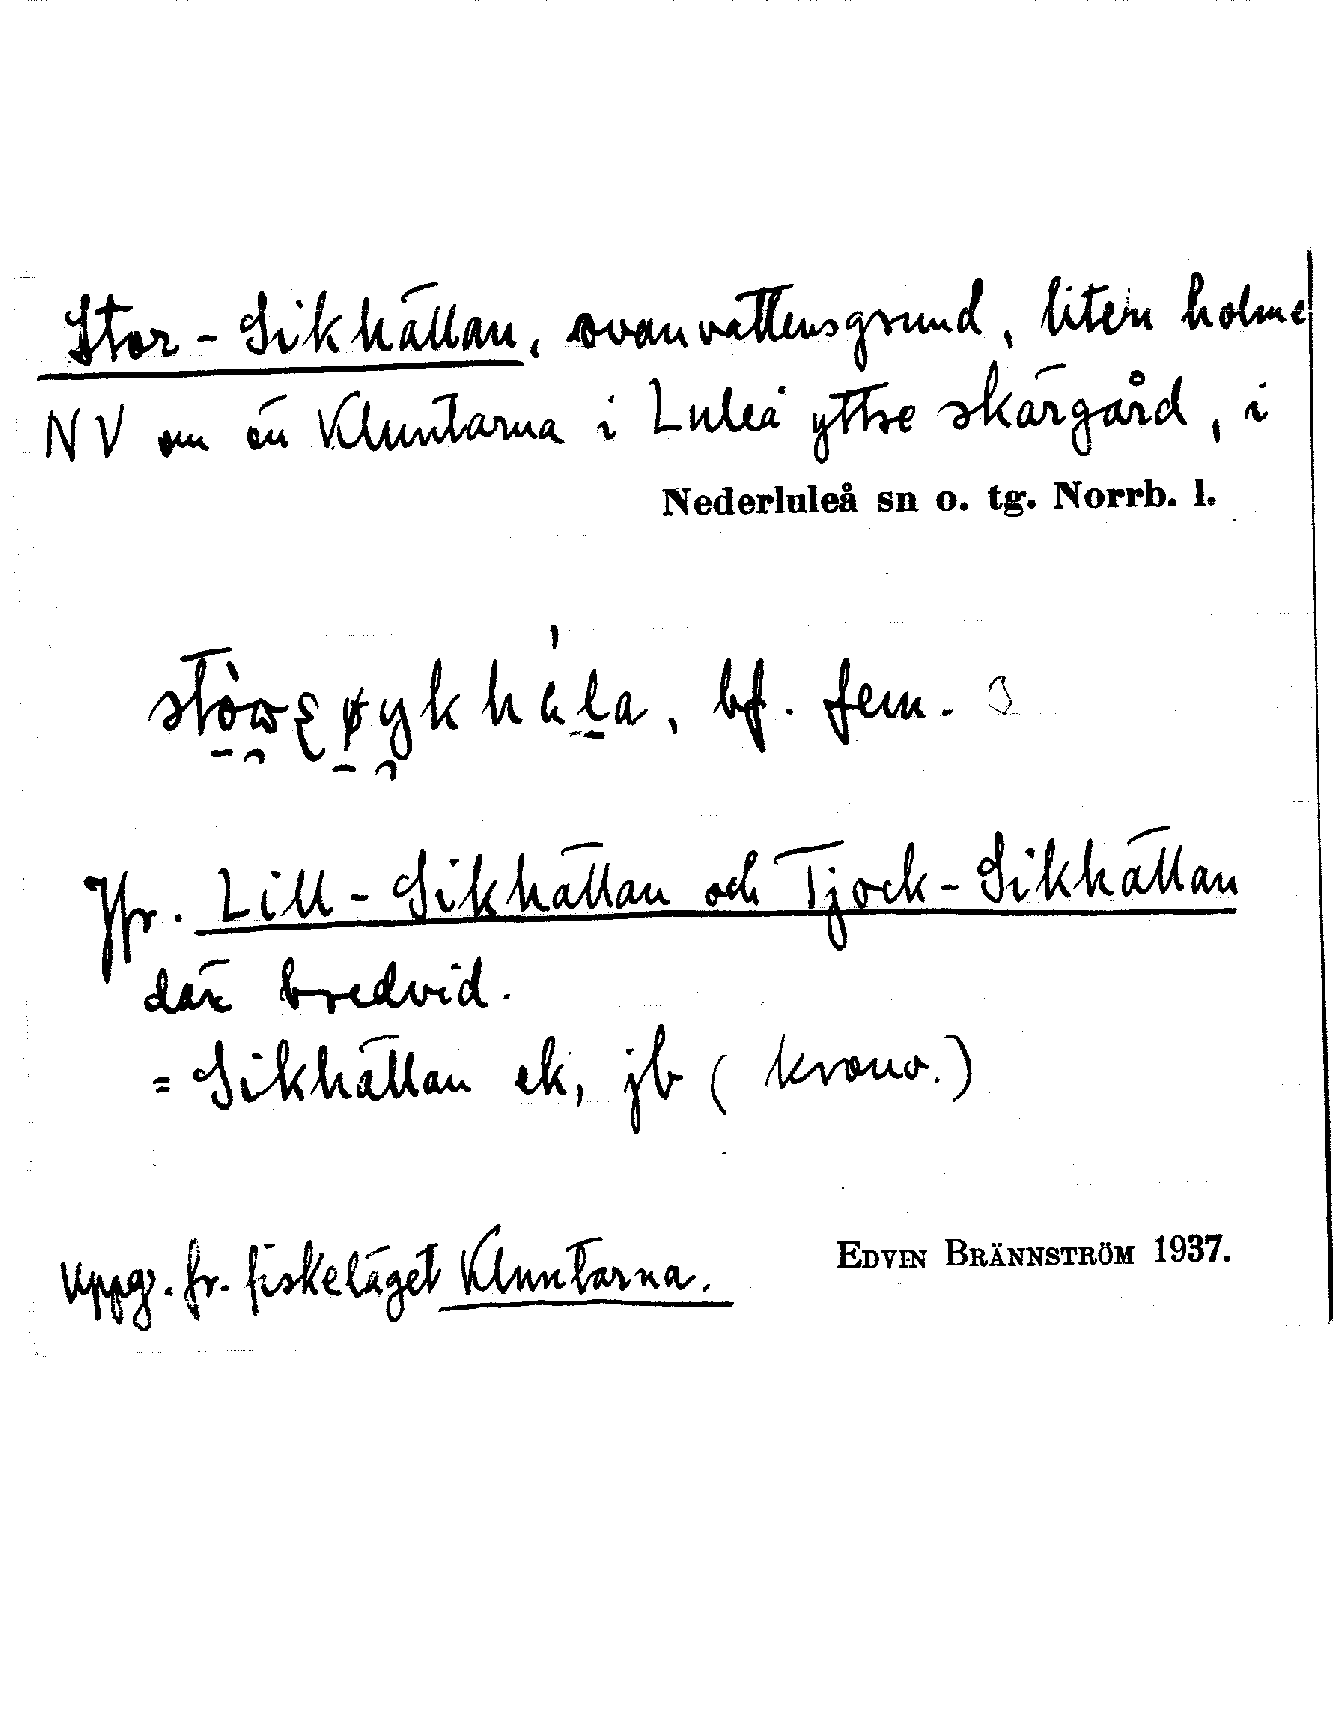 Stor-Sikhällan, ovanvattensgrund, liten holme
NV om ön Kluntarna i Luleå yttre skärgård, i
Nederluleå sn o. tg. Norrb. l.
bf. fem.
Jfr. Lill-Sikhällan och Tjock-Sikhällan
där bredvid.
= Sikhällan ek, jb (krono.)
Uppg. fr. fiskeläget Kluntarna.
EDVIN BRÄNNSTRÖM 1937.